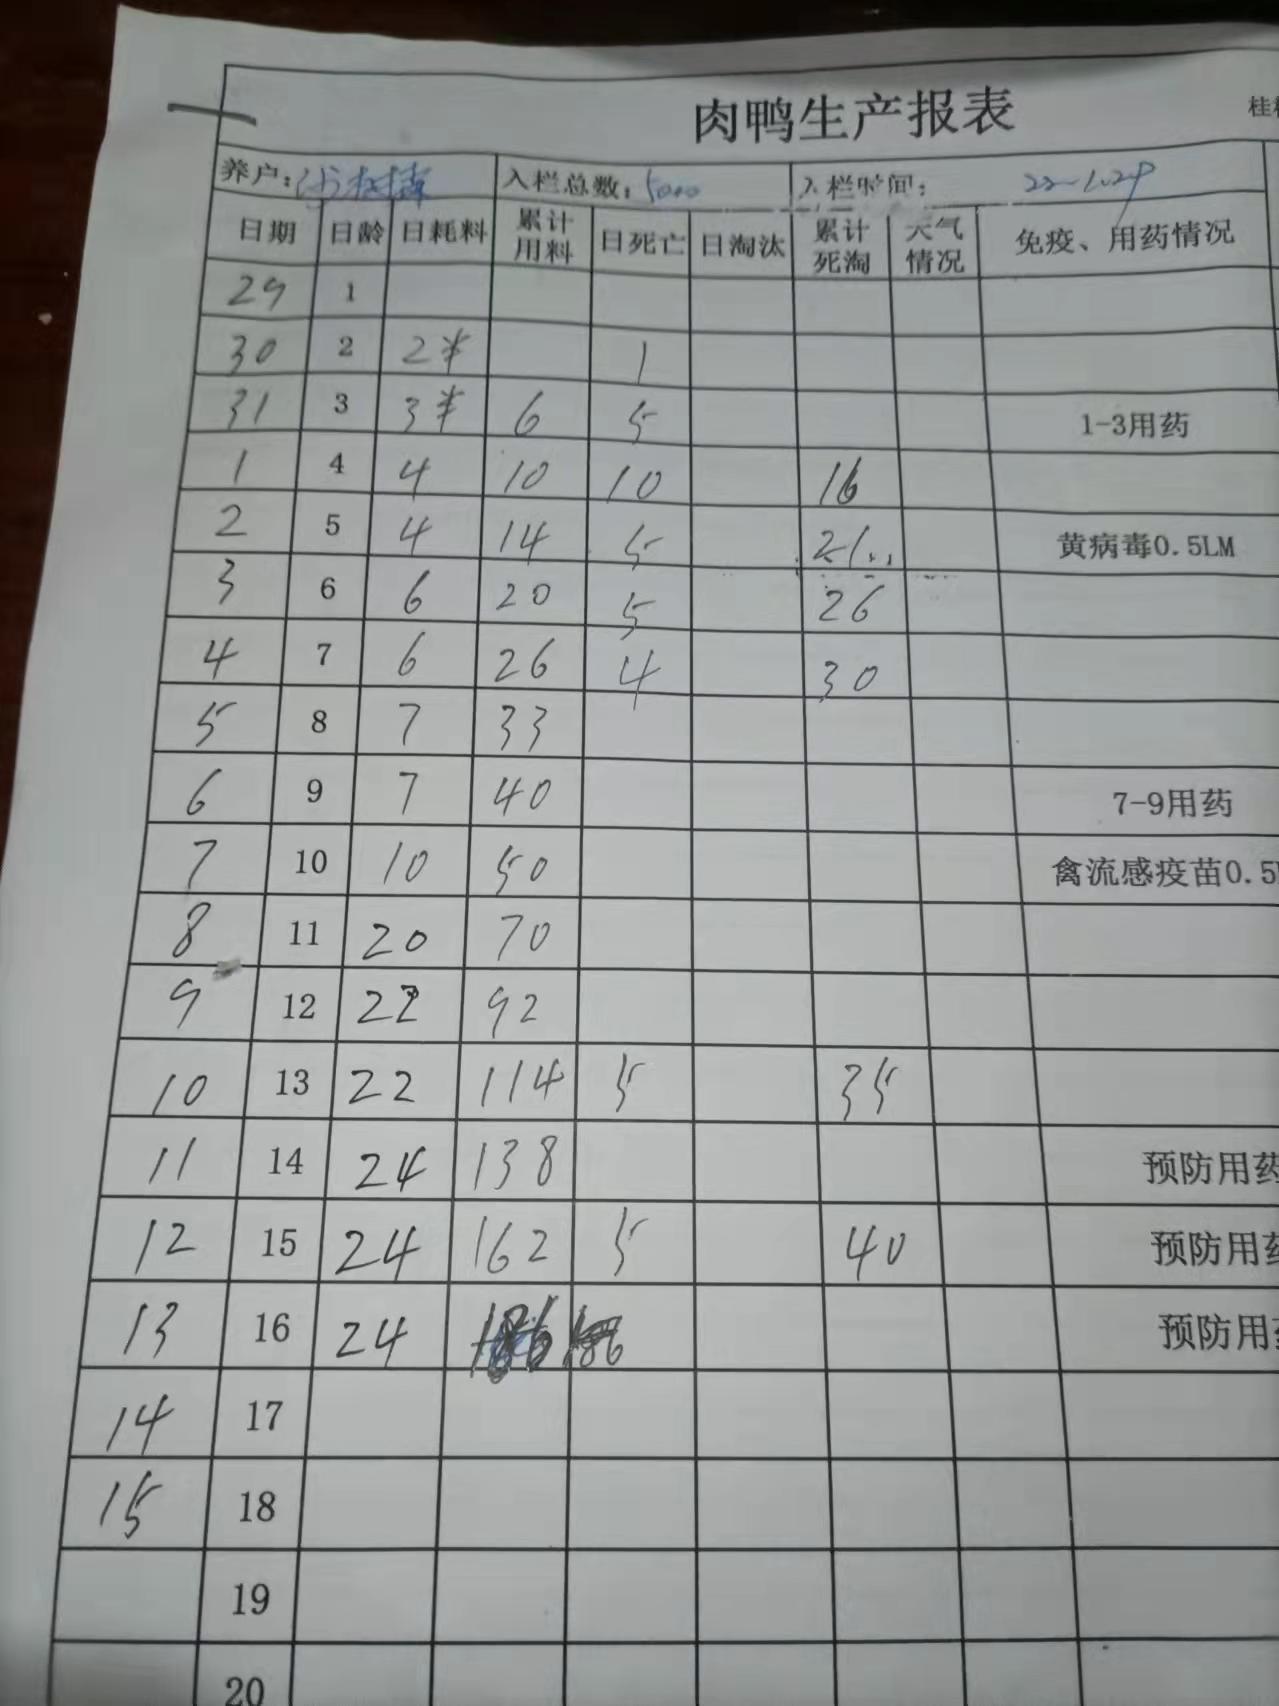 肉鸭生产报表 桂
养户: 入栏总数: 5000 入栏时间: 22-1.29
日期 日龄 日耗料 累计用料 日死亡 日淘汰 累计死淘 天气情况 免疫、用药情况
29 1
30 2 2半 1
31 3 3半 6 5 1-3用药
1 4 4 10 10 16
2 5 4 14 5 21 黄病毒0.5LM
3 6 6 20 5 26
4 7 6 26 4 30
5 8 7 33
6 9 7 40 7-9用药
7 10 10 50 禽流感疫苗0.5
8 11 20 70
9 12 22 92
10 13 22 114 5 35
11 14 24 138 预防用药
12 15 24 162 5 40 预防用药
13 16 24 186 预防用药
14 17
15 18
19
20